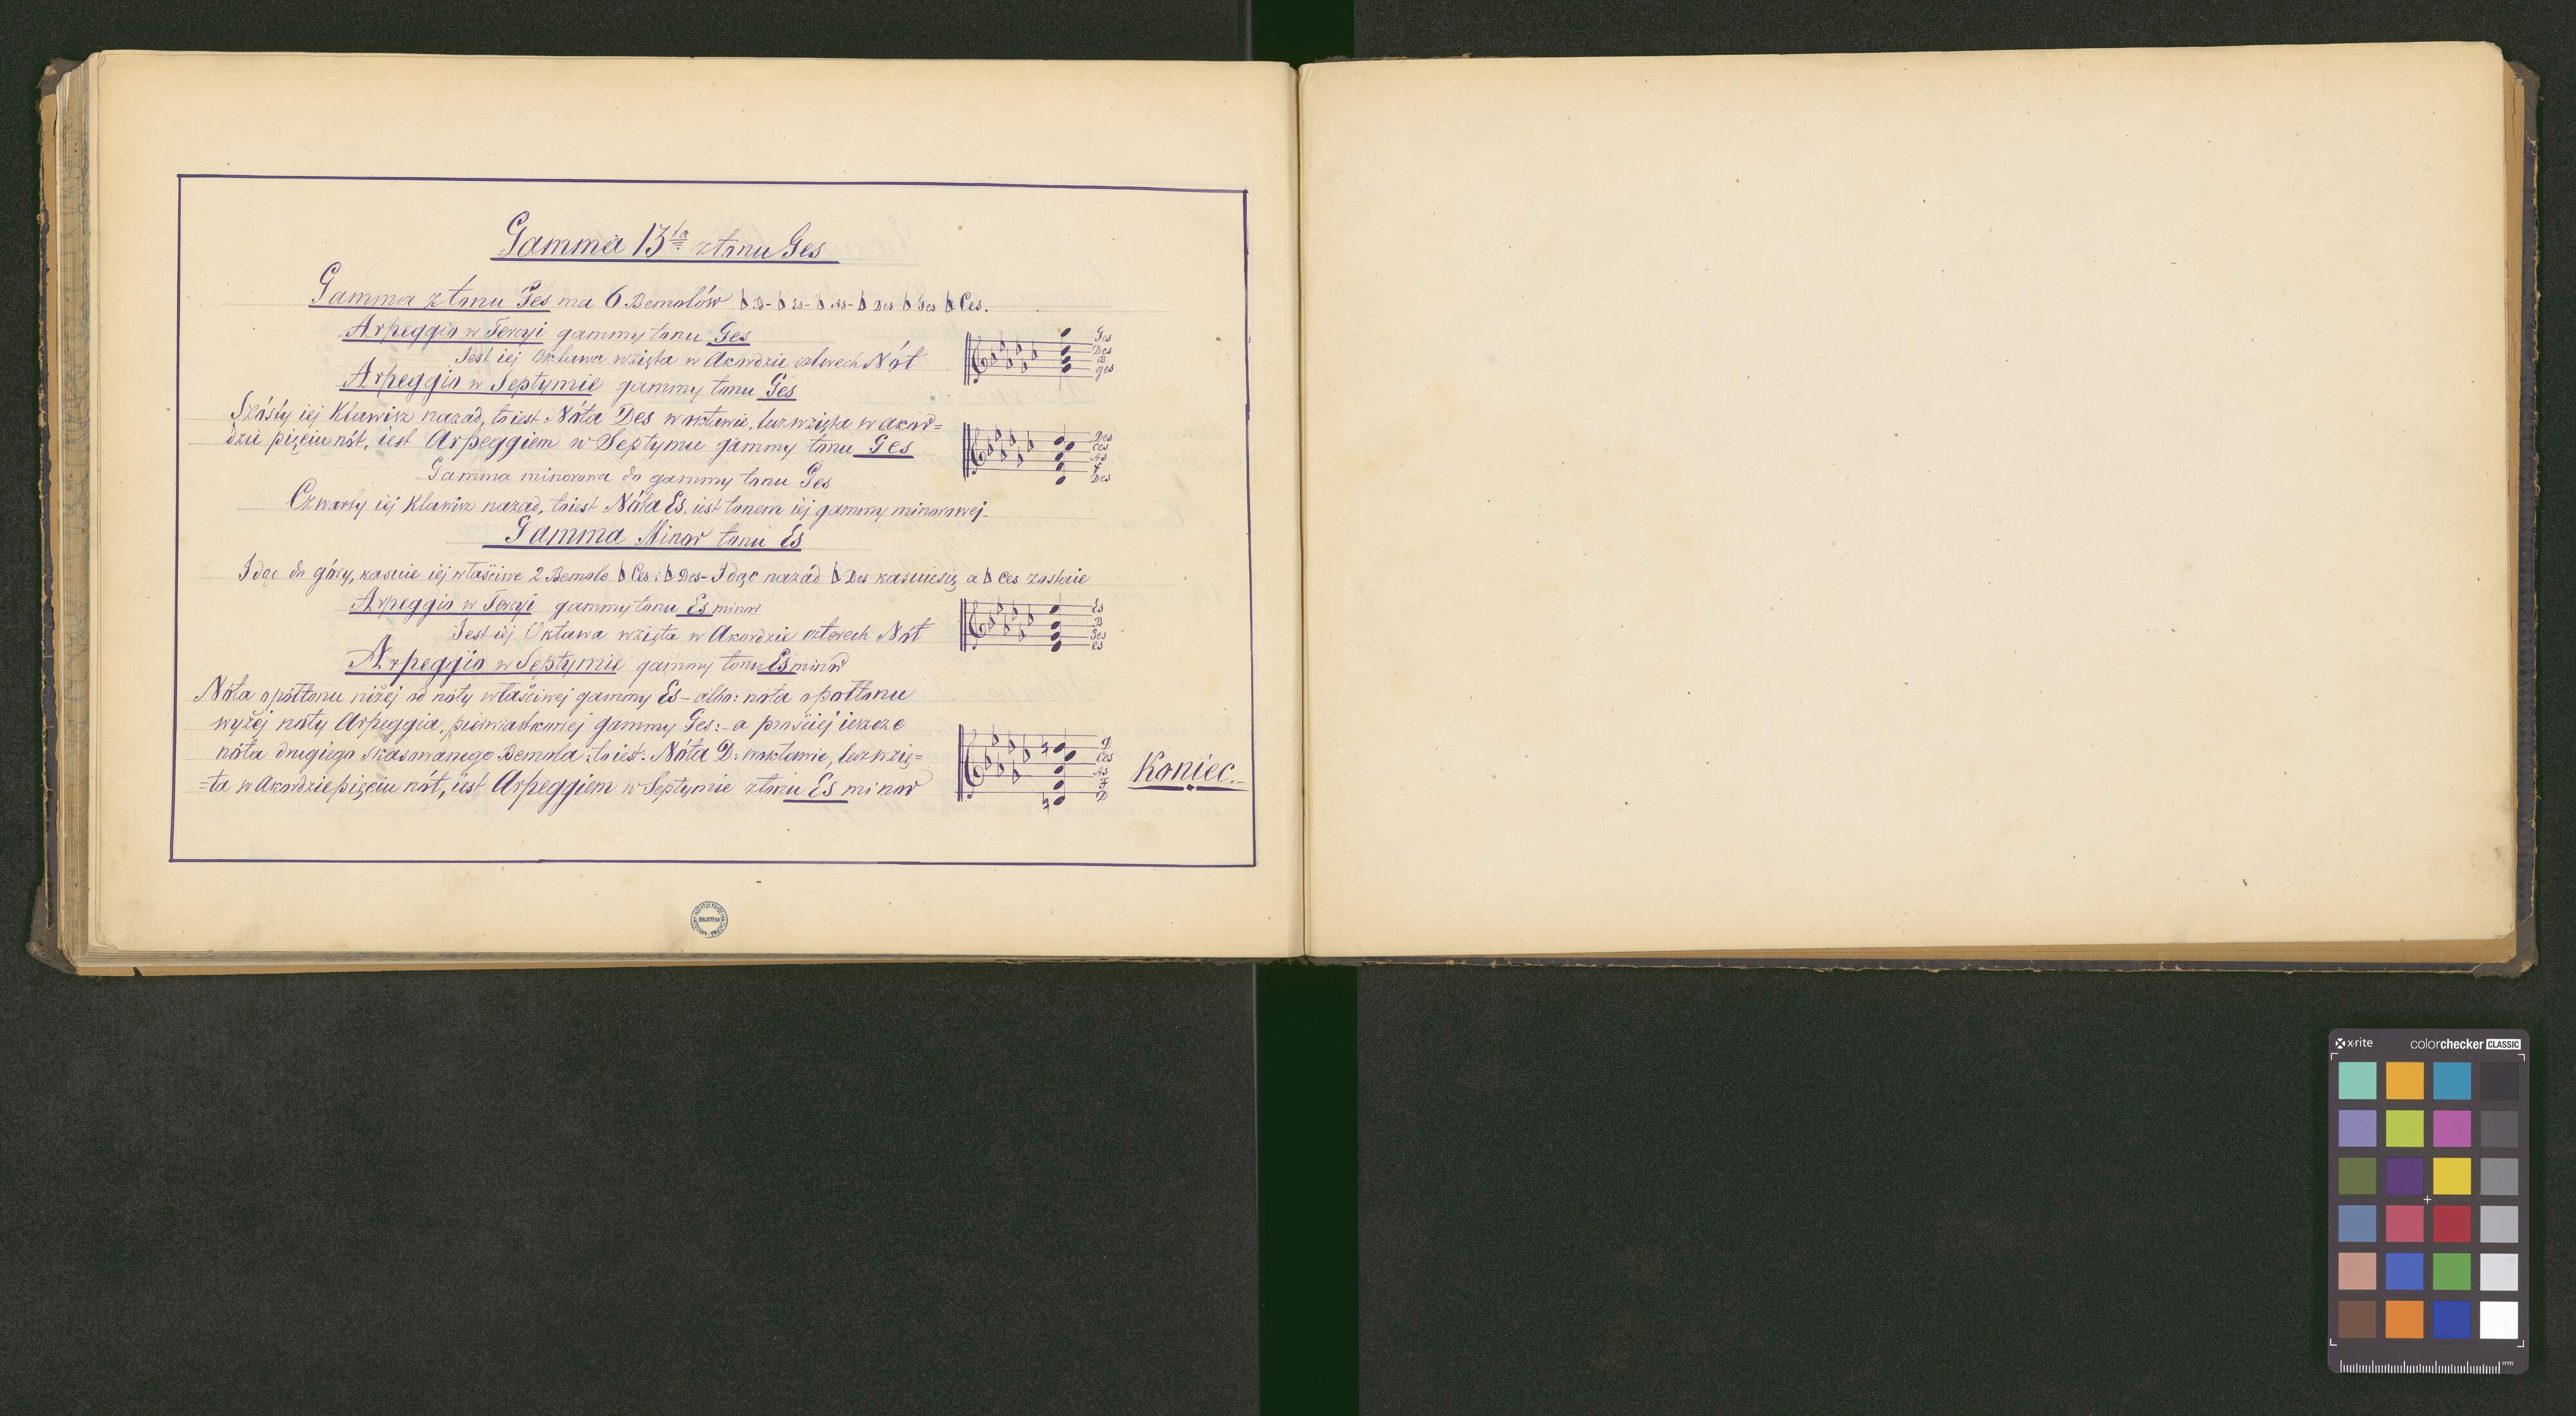 Gamma 13ta z tonu Ges
Gamma z tonu Ges ma 6 Bemolów ♭ B- ♭ Es- ♭ As- ♭ Des ♭ Ges ♭ Ces.
Arpeggio w Tercyi gammy tonu Ges
Jest iej Oktawa wzięta w Akordzie czterech Nót
Ges
Des
B
ges
Arpeggio w Septymie gammy tonu Ges
Szósty iej Klawisz nazad, to iest Nóta Des w oktawie, lecz wzięta w akor=
dzie pięciu nót, iest Arpeggiem w Septymie gammy tonu Ges
Des
Ces
As
F
Des
Gamma minorowa do gammy tonu Ges
Czwarty iej Klawisz nazad, to iest Nóta Es, iest tonem iej gammy minorowej-
Gamma Minor tonu Es
Idąc do góry, kasuie iej właściwe 2 Bemole ♭ Ces i ♭ Des- Idąc nazád ♭ Des kasuiesię a ♭ Ces zostaie
Arpeggio w Tercyi gammy tonu Es minor
Jest iej Oktawa wzięta w Akordzie czterech Nót
Es
B
Ges
es
Arpeggio w Septymie gammy tonu Es minor
Nóta o półtonu niżej od nóty właściwej gammy Es- albo: nóta o półtonu
wyżej nóty Arpeggia, pierwiastkowej gammy Ges:- a prościej ieszcze
nóta drugiego skasowanego Bemola: to iest: Nóta D: w oktawie, lecz wzię=
=ta w Akordzie pięciu nót, iest Arpeggiem w Septymie z tonu Es minor
D
Ces
As
F
D
Koniec.
BIBLIOTEKA
x·rite colorchecker CLASSIC
mm